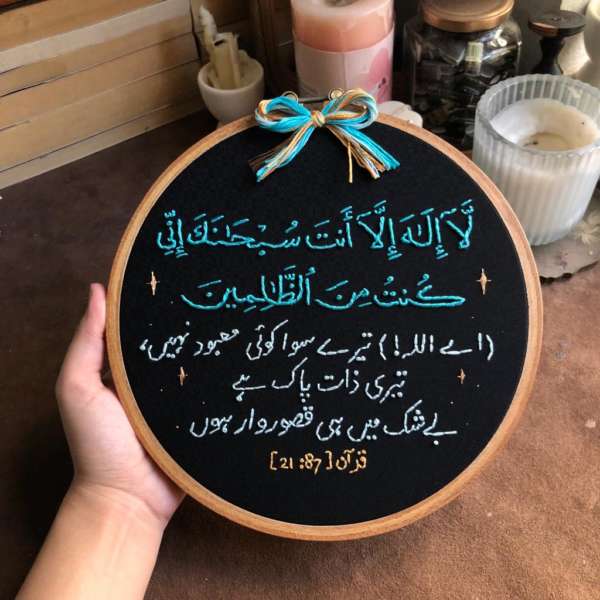 لَّآ إِلَـٰهَ إِلَّآ أَنتَ سُبْحَـٰنَكَ إِنِّي
كُنتُ مِنَ ٱلظَّـٰلِمِينَ
(اے اللہ!) تیرے سوا کوئی معبود نہیں،
تیری ذات پاک ہے
بے شک میں ہی قصوروار ہوں
قرآن [21:87]